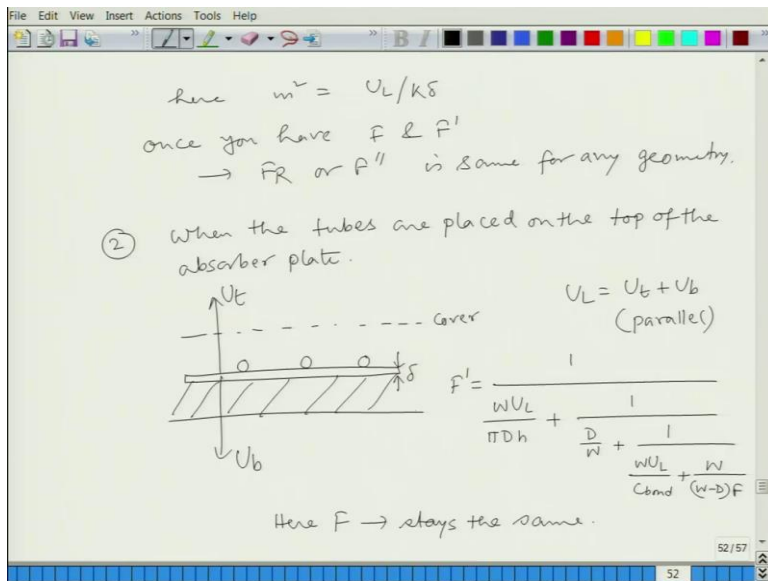 File Edit View Insert Actions Tools Help
B I
here m² = U_L/Kδ
once you have F & F'
→ F_R or F'' is same for any geometry.
② When the tubes are placed on the top of the
absorber plate.
U_t
U_L = U_t + U_b
cover
(parallel)
δ
F' = 1 / (WU_L/πDh + 1 / (D/W + 1 / (WU_L/Cbond + W/(W-D)F)))
U_b
Here F → stays the same.
52/57
52